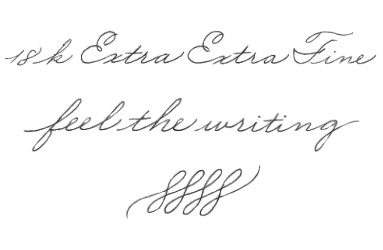 18k Extra Extra Fine
feel the writing